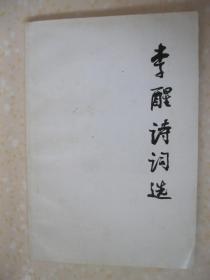 李醒诗词选